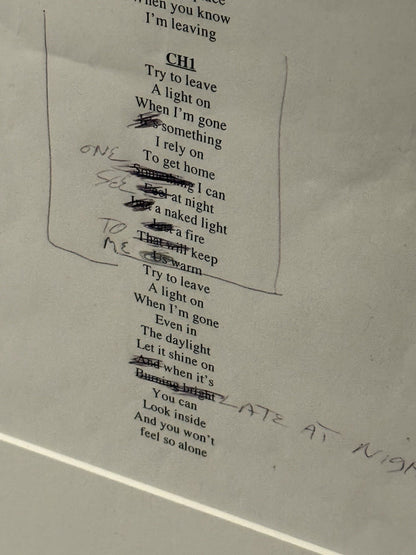 When you know
I'm leaving
CH1
Try to leave
A light on
When I'm gone
It's something
I rely on
To get home
ONE Something I can
SEE Feel at night
Just a naked light
Just a fire
TO That will keep
ME Us warm
Try to leave
A light on
When I'm gone
Even in
The daylight
Let it shine on
And when it's
Burning bright LATE AT NIGH
You can
Look inside
And you won't
feel so alone